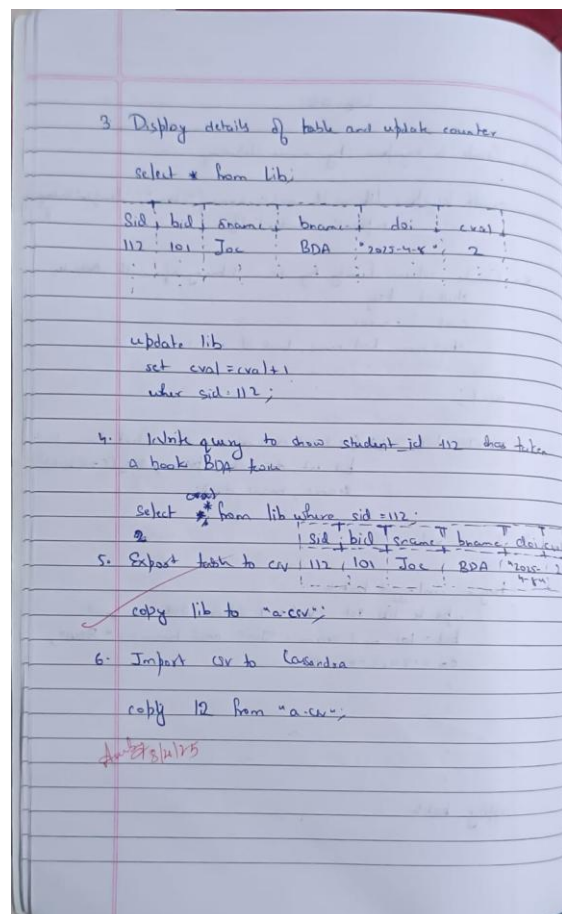 3 Display details of table and update counter
select * from lib;
Sid bid sname bname doi cval
112 101 Joe BDA "2025-4-8" 2
update lib
set cval = cval+1
wher sid=112;
4. Write query to show student_id 112 has taken
a book BDA
cval
select * from lib where sid =112;
2
sid bid sname bname doi
5. Export table to csv 112 101 Joe BDA "2025-4-8" 2
copy lib to "a.csv";
6. Import csv to Cassandra
copy 12 from "a.csv";